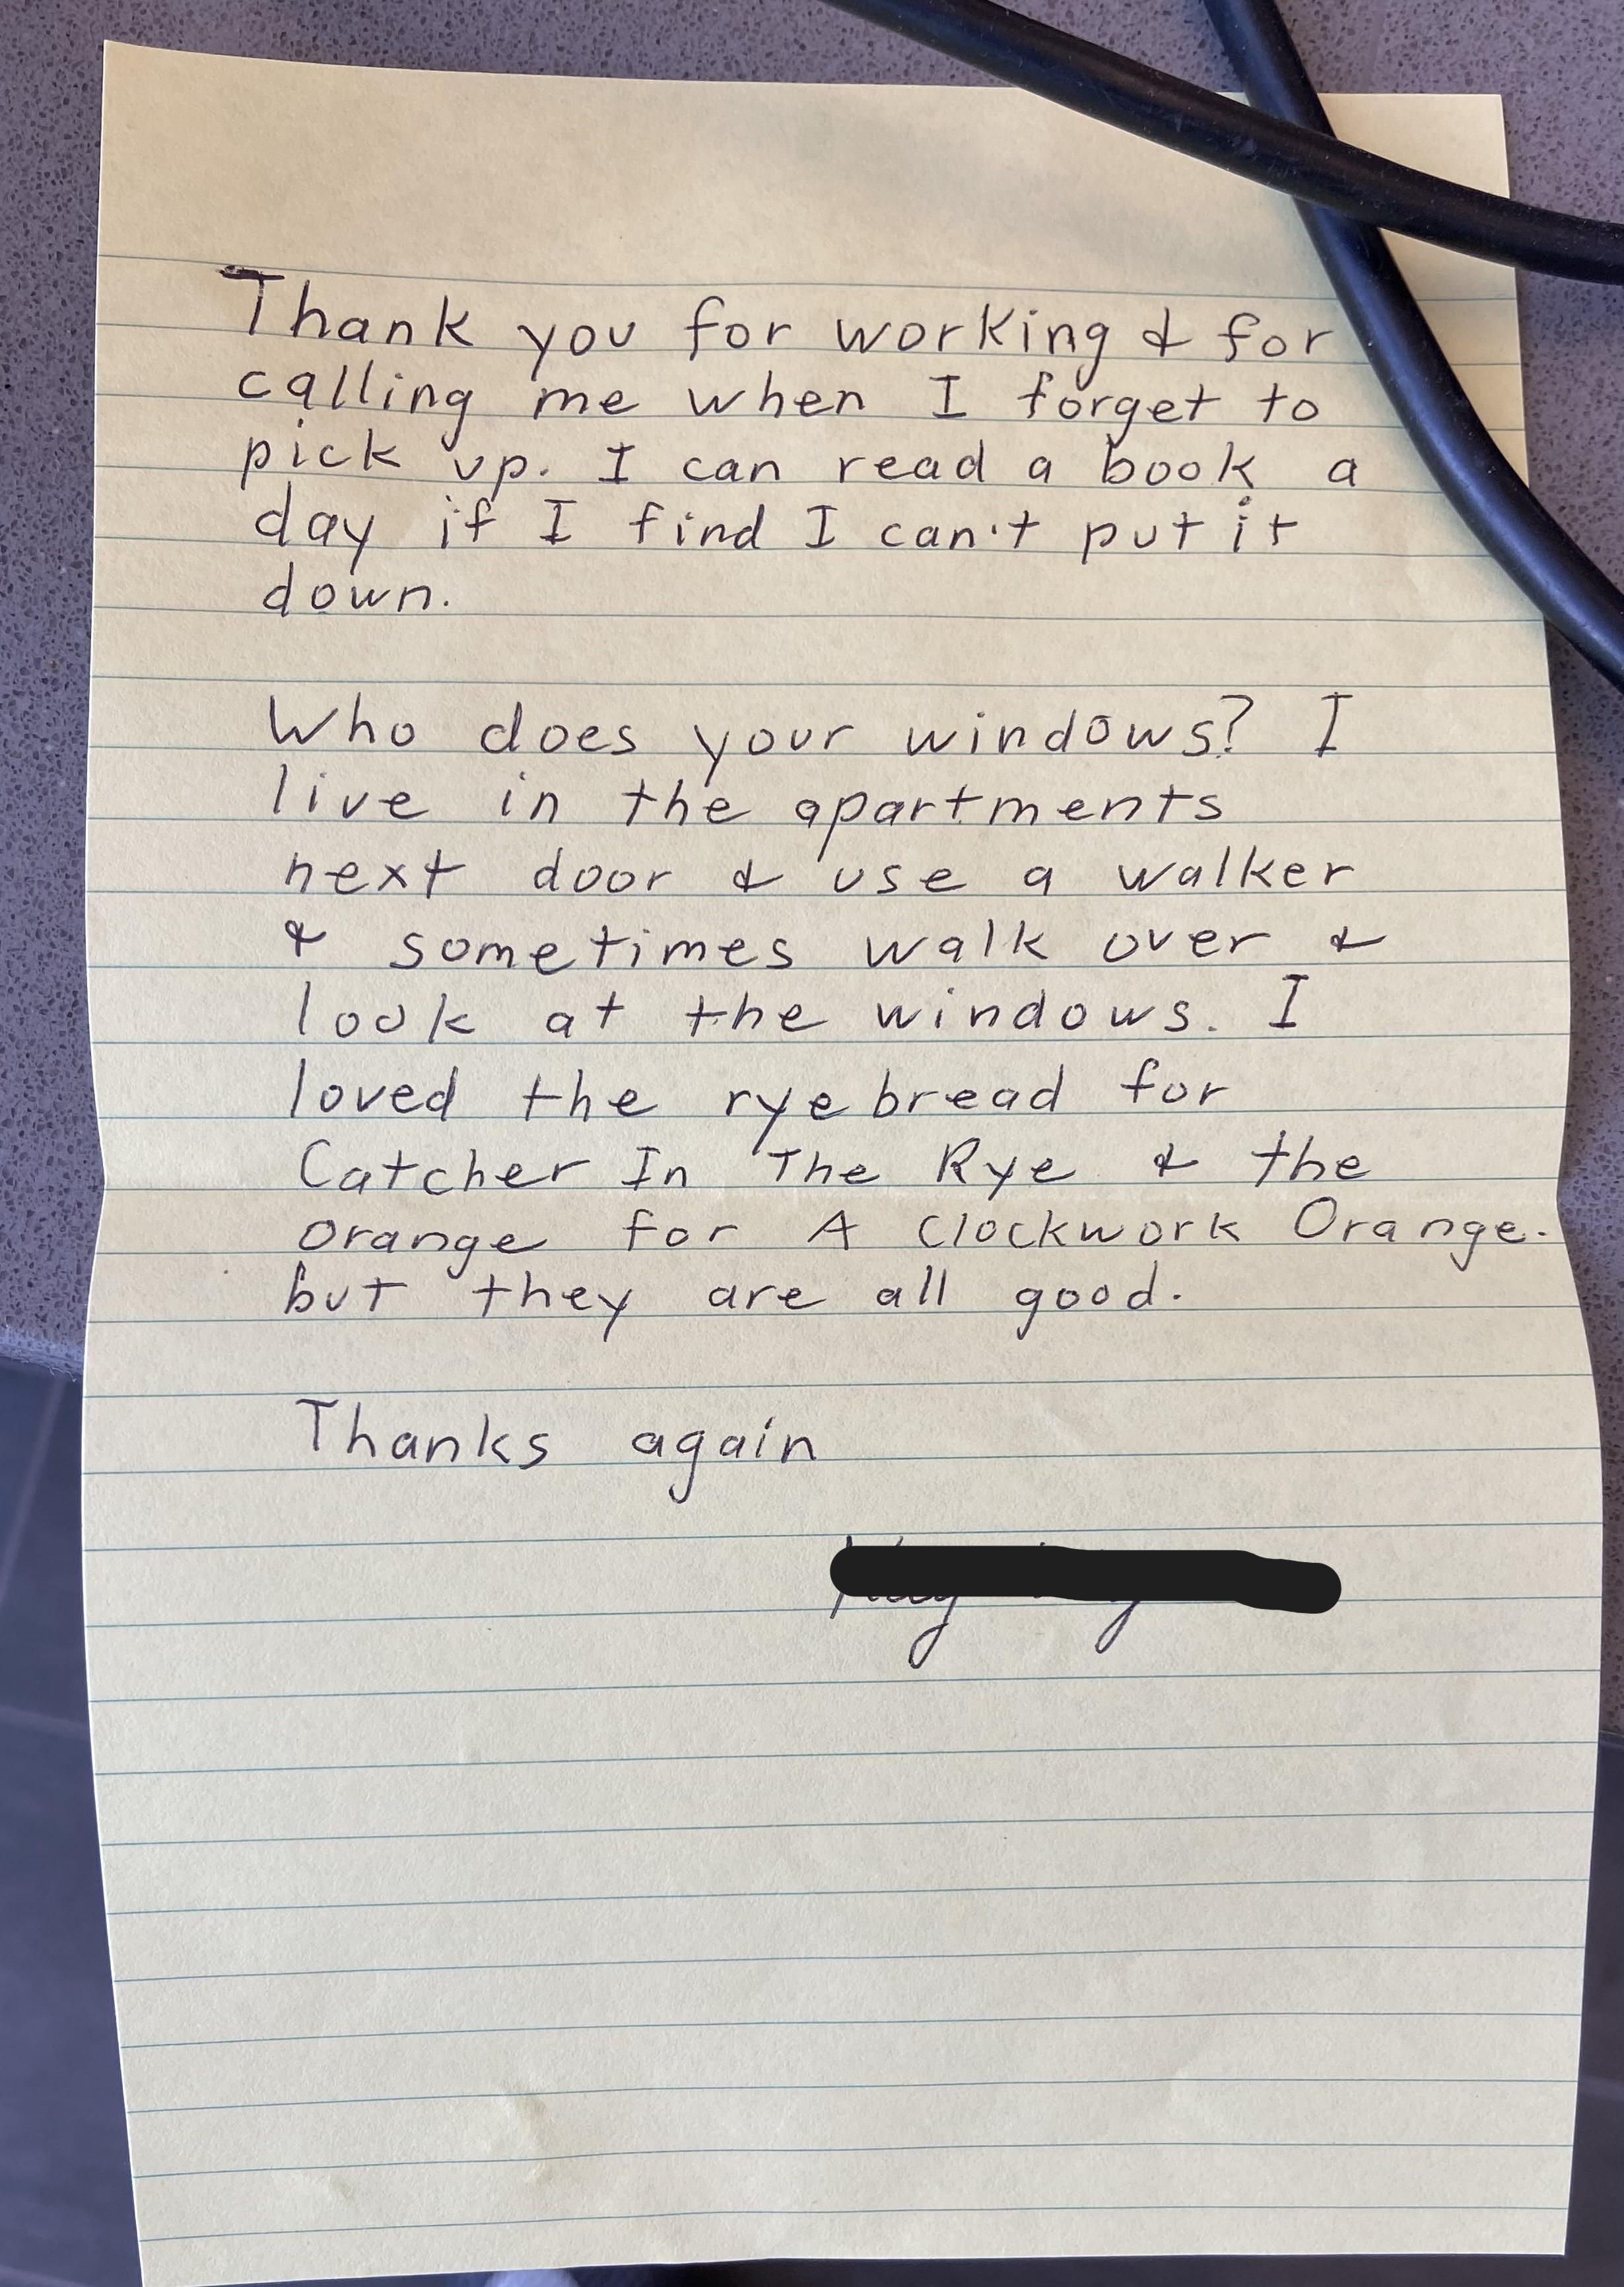 Thank you for working & for
calling me when I forget to
pick up. I can read a book a
day if I find I can't put it
down.
Who does your windows? I
live in the apartments
next door & use a walker
& sometimes walk over &
look at the windows. I
loved the rye bread for
Catcher In The Rye & the
orange for A Clockwork Orange.
but they are all good.
Thanks again